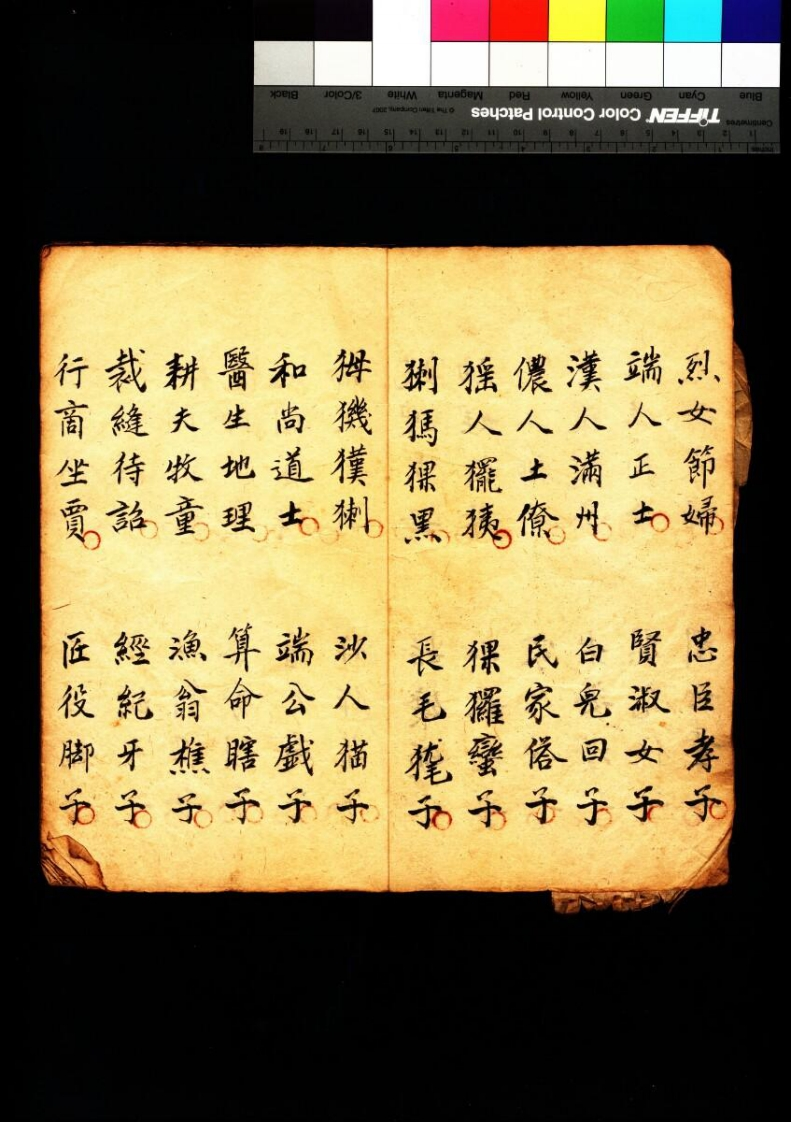 烈女節婦 忠臣孝子
端人正士 賢淑女子
漢人滿州 白皃回子
儂人土僚 民家俗子
猺人擺㹫 猓玀蠻子
猁獁猓黑 長毛㹿子
㹱獥獏猁 沙人猫子
和尚道士 端公戲子
醫生地理 算命瞎子
耕夫牧童 漁翁樵子
裁縫待詔 經紀牙子
行商坐賈 匠役脚子
Blue Cyan Green Yellow Red Magenta White 3/Color Black
TIFFEN Color Control Patches
© The Tiffen Company, 2007
Centimetres
Inches